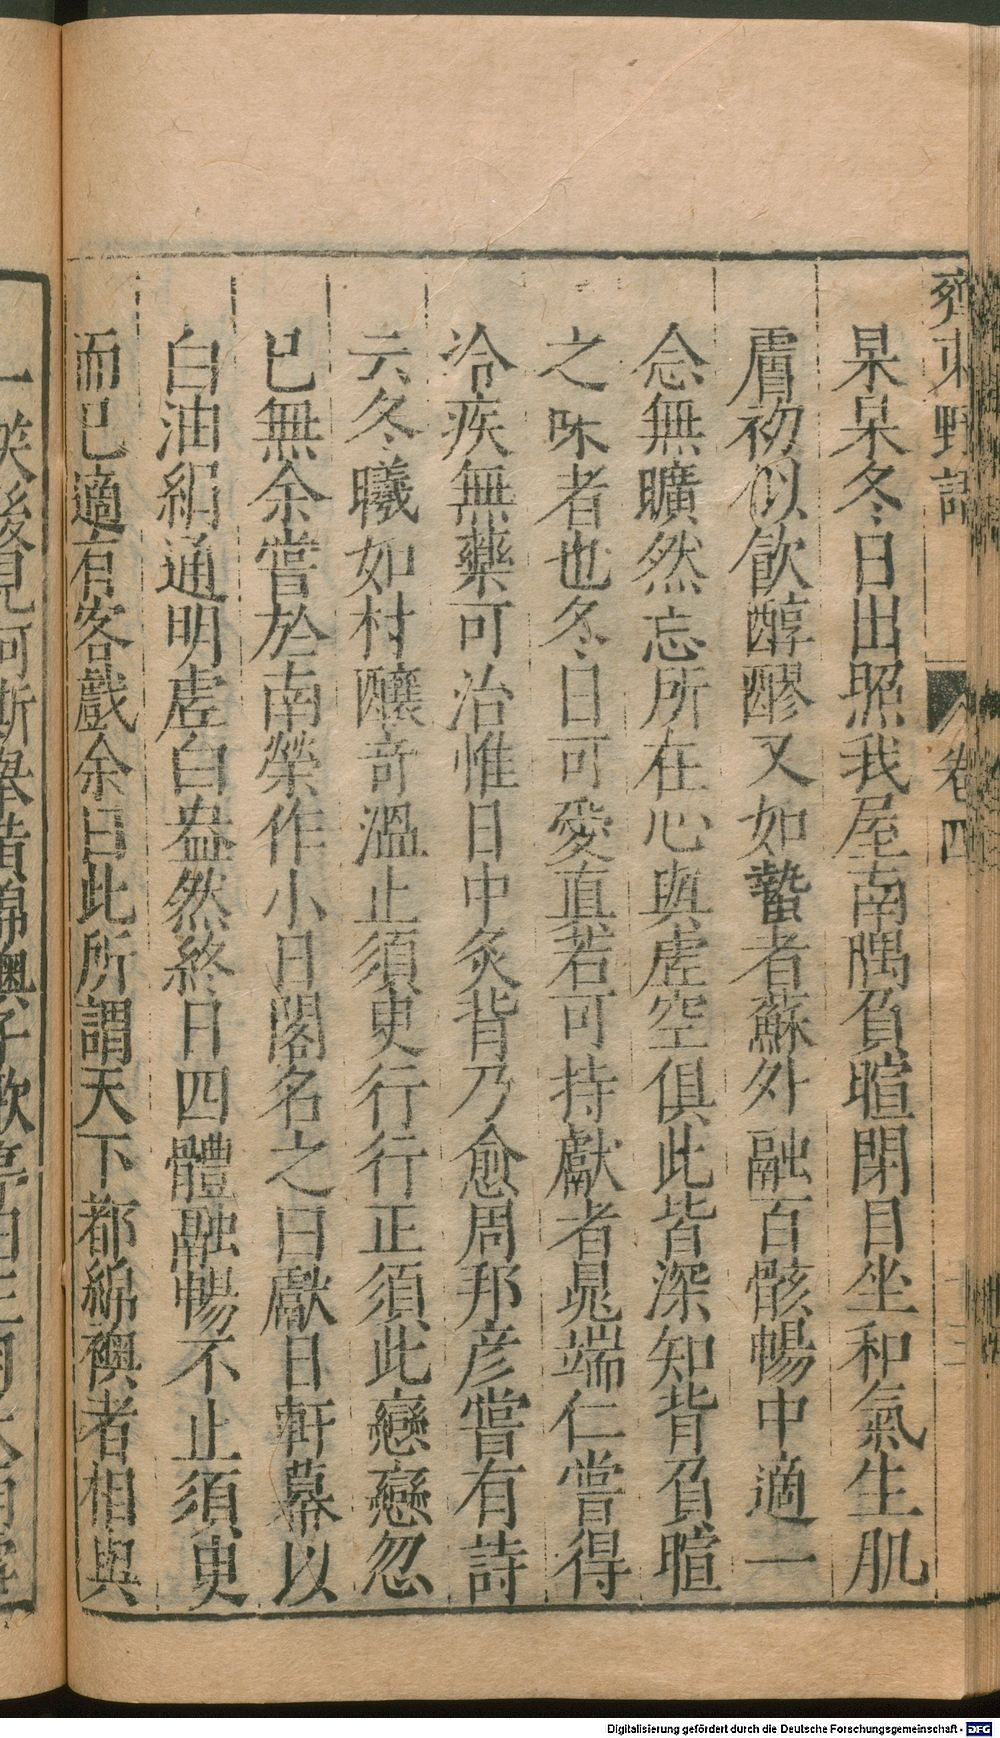 齊東野語 卷四
杲杲冬日出照我屋南隅負暄閉目坐和氣生肌
膚初似飲醇醪又如蟄者蘇外融百骸暢中適一
念無曠然忘所在心與虛空俱此皆深知背負暄
之味者也冬日可愛直若可持獻者晁端仁嘗得
冷疾無藥可治惟日中炙背乃愈周邦彥嘗有詩
云冬曦如村釀奇溫止須臾行行正須此戀戀忽
已無余嘗於南榮作小日閣名之曰獻日軒幕以
白油絹通明虛白盎然終日四體融暢不止須臾
而已適有客戲余曰此所謂天下都綿襖者相與
一笑後見何斯舉黃綿襖子歌
Digitalisierung gefördert durch die Deutsche Forschungsgemeinschaft - DFG